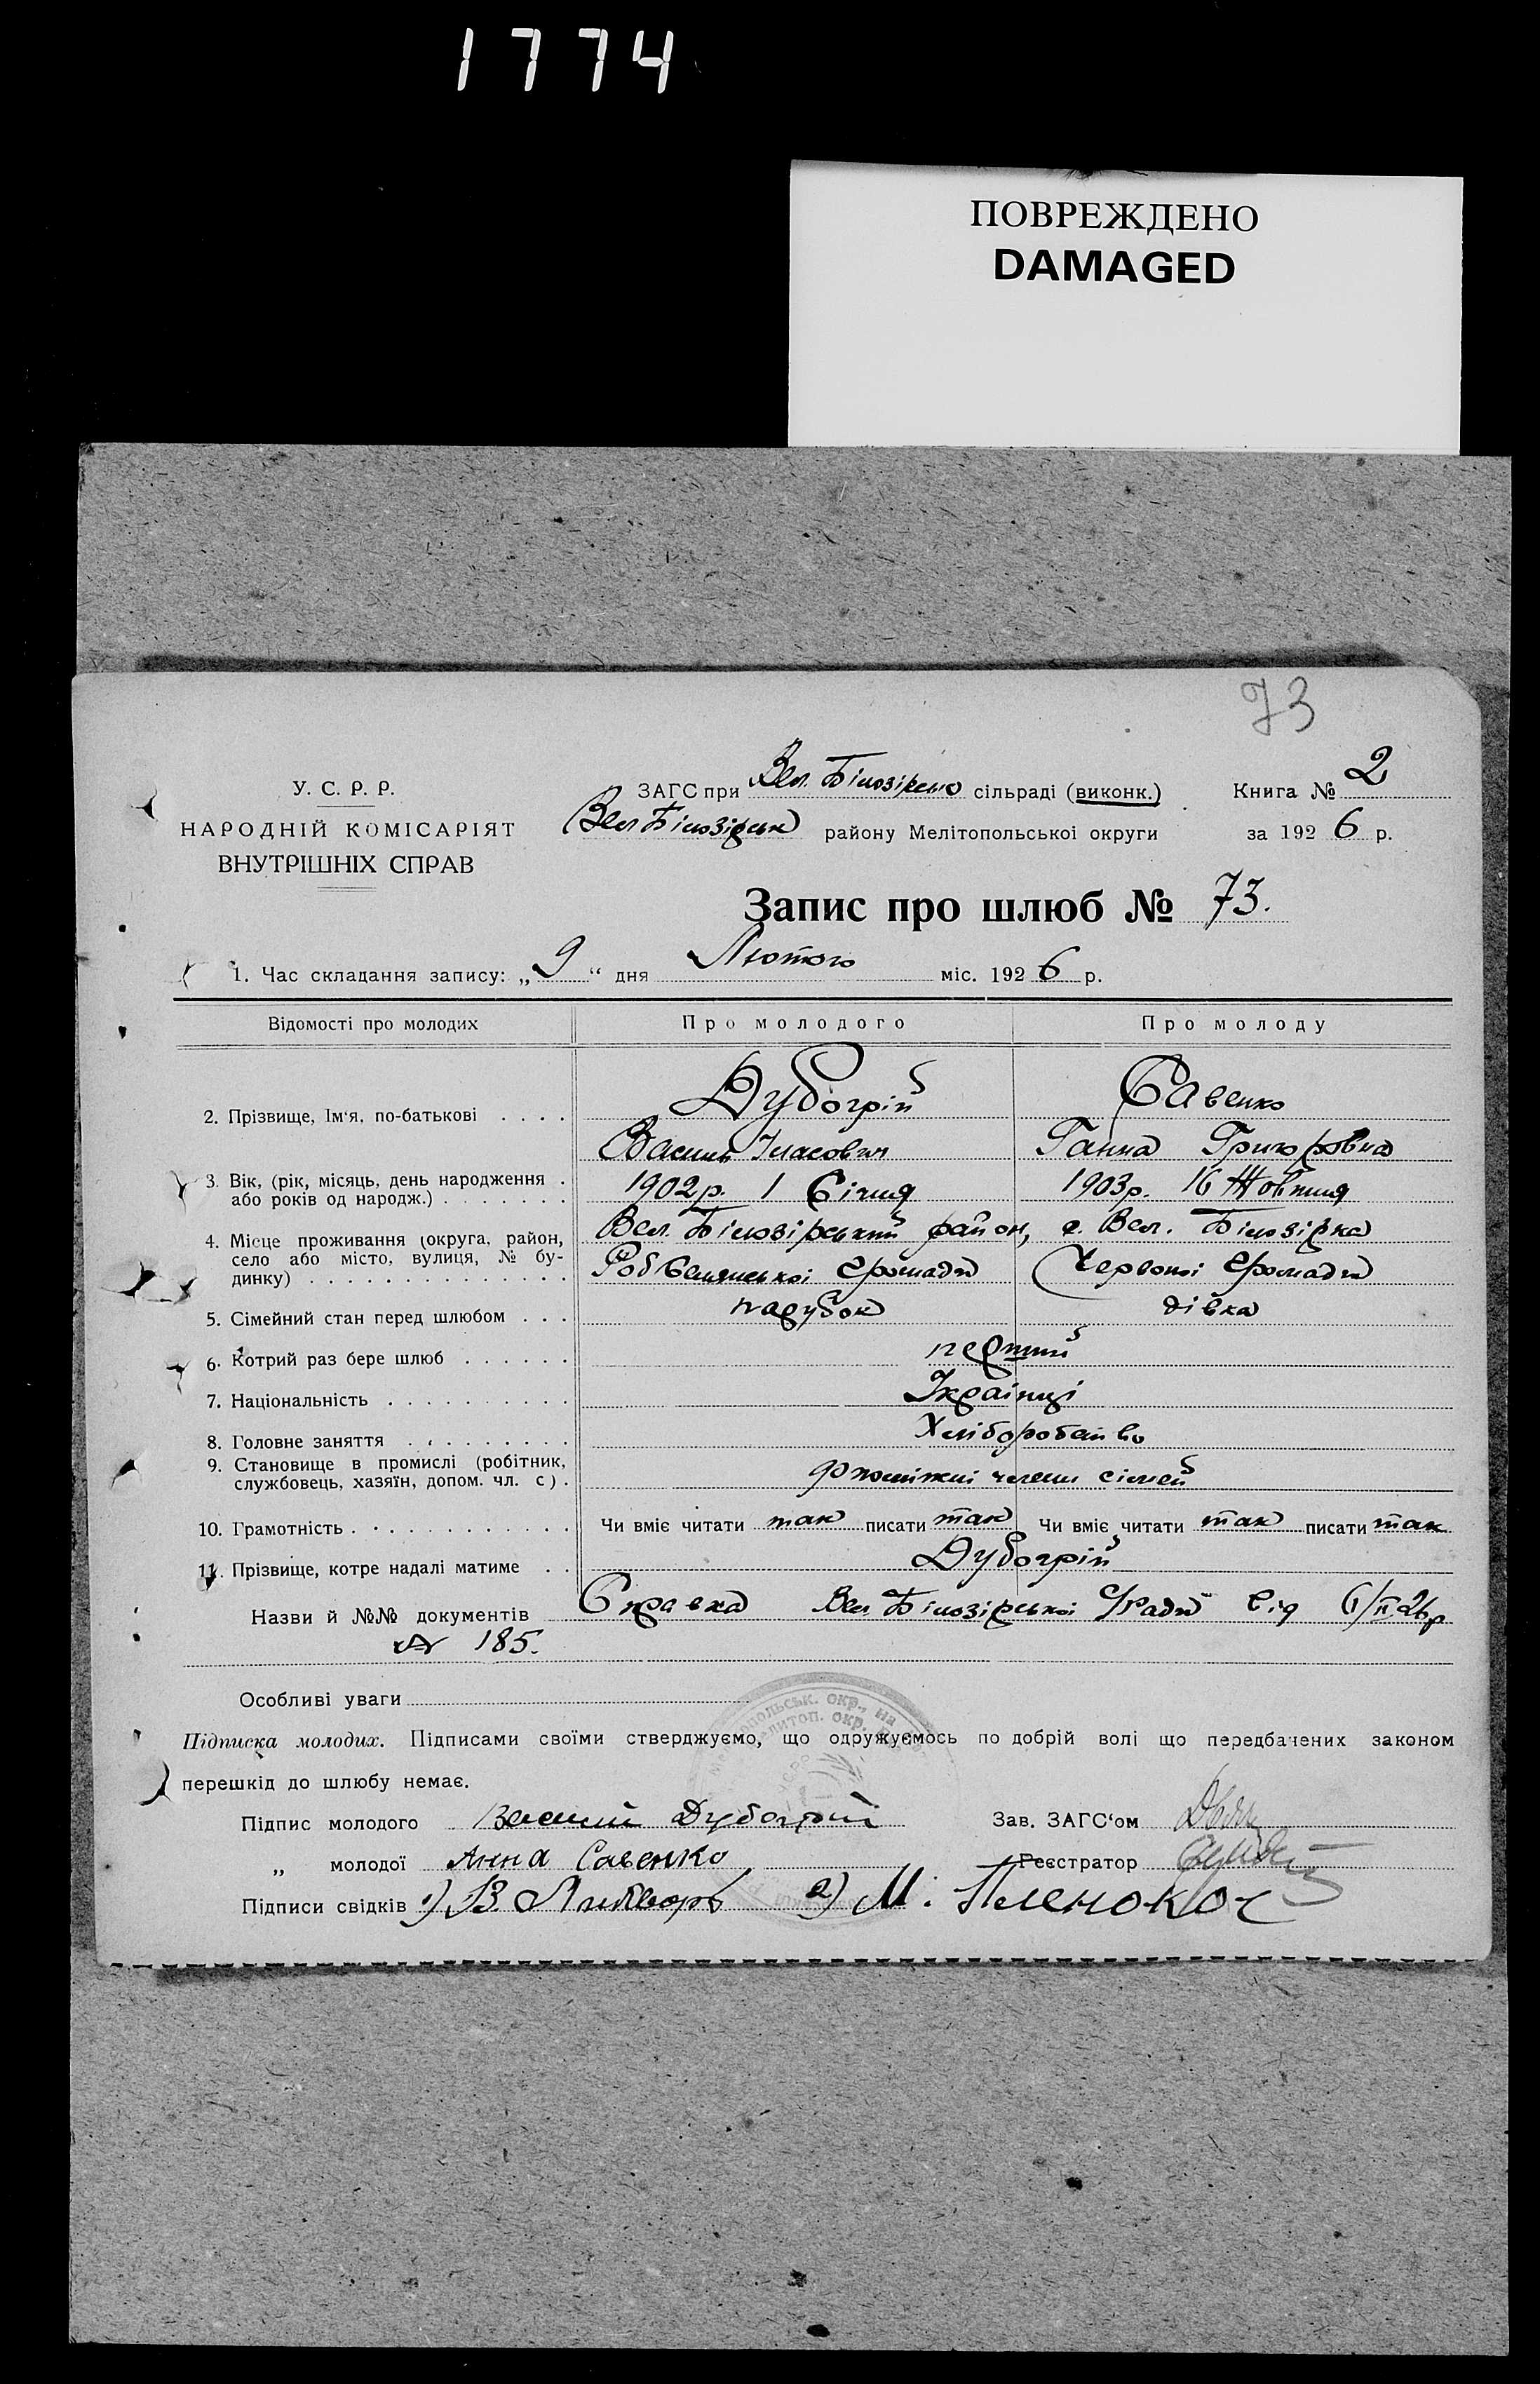 1774
ПОВРЕЖДЕНО
DAMAGED
73
У. С. Р. Р.
НАРОДНІЙ КОМІСАРІЯТ
ВНУТРІШНІХ СПРАВ
ЗАГС при Вел. Білозірсько сільраді (виконк.)
Вел Білозірськ району Мелітопольської округи
Книга № 2
за 1926 р.
Запис про шлюб № 73.
1. Час складання запису: „9“ дня Лютого міс. 1926 р.
Відомості про молодих Про молодого Про молоду
2. Прізвище, Ім‘я, по-батькові . . . . Дубогрій Савенко
Василь Власович Ганна Григоровна
3. Вік, (рік, місяць, день народження . 1902р. 1 Січня 1903р. 16 Жовтня
або років од народж.) . . . . . . .
4. Місце проживання (округа, район, Вел. Білозірський район, с. Вел. Білозірка
село або місто, вулиця, № бу-
динку) . . . . . . . . . . . . . . Робселянської громади Червоної громади
5. Сімейний стан перед шлюбом . . . парубок дівка
6. Котрий раз бере шлюб . . . . . . перший
7. Національність . . . . . . . . . . Українці
8. Головне заняття . . . . . . . . . Хліборобство
9. Становище в промислі (робітник,
службовець, хазяїн, допом. чл. с) . члени сімей
10. Грамотність . . . . . . . . . . . . Чи вміє читати так писати так Чи вміє читати так писати так
11. Прізвище, котре надалі матиме . . Дубогрій
Назви й №№ документів Справка Вел Білозірської с/ради від
№ 185.
Особливі уваги
Підписка молодих. Підписами своїми стверджуємо, що одружуємось по добрій волі що передбачених законом
перешкід до шлюбу немає.
Підпис молодого Василий Дубогрий
Зав. ЗАГС‘ом
„ молодої Анна Савенко
Реєстратор
Підписи свідків 1) В. 2) М.